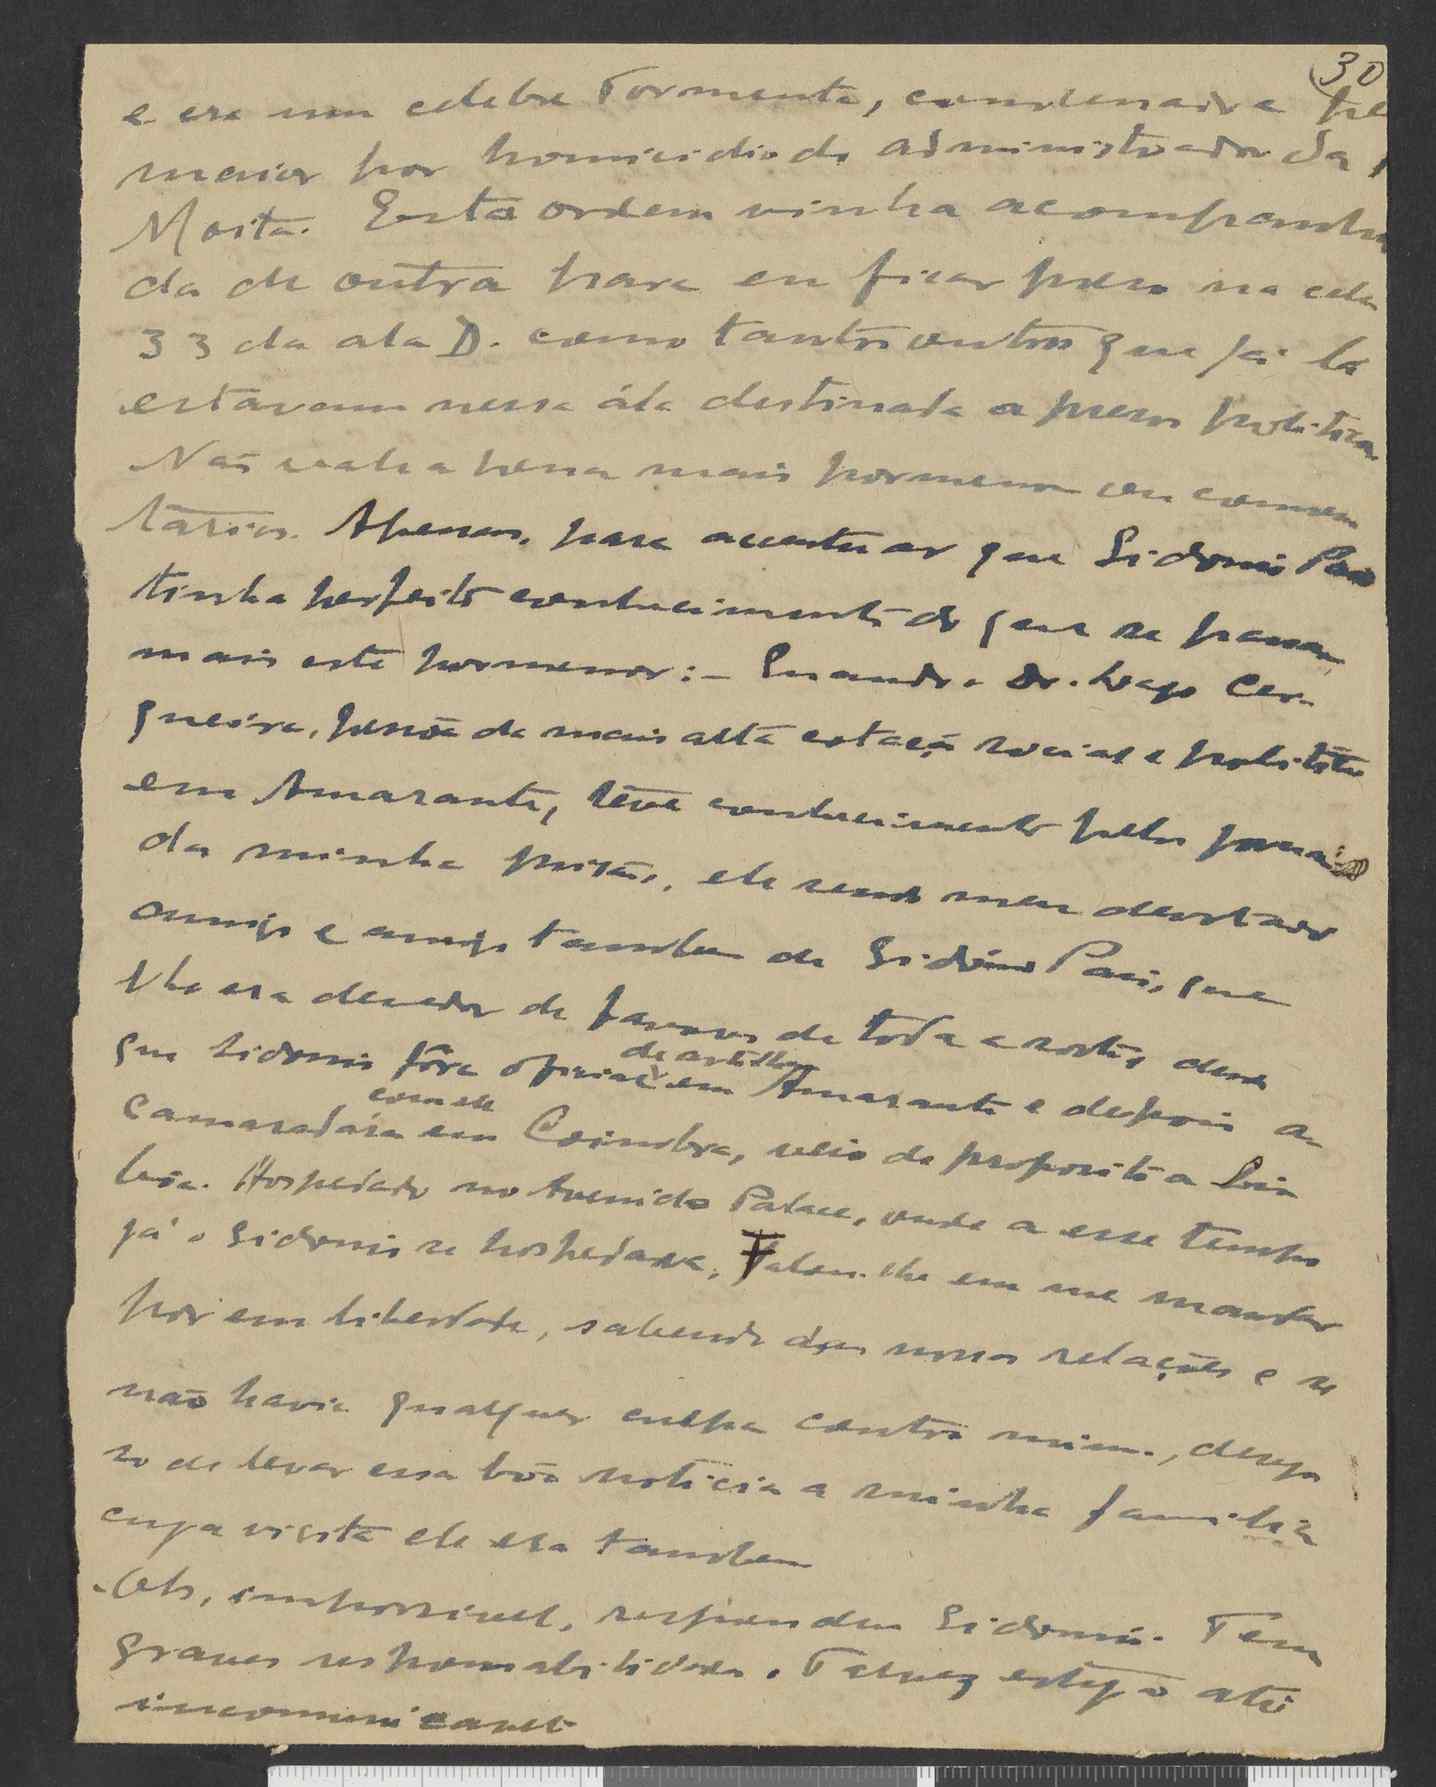 30
e era um celebre Tormenta, condenado a pe
maior por homicidio do administrador da
Moita. Esta ordem vinha acompanha
da de outra para eu ficar preso na cela
33 da ala D. como tantos outros que já lá
estavam nessa ála destinada a presos politicos
Não valle a pena mais pormenor ou comen
tarios. Apenas, para acentuar que Sidonio Pais
tinha perfeito conhecimento do que se passava
mais este pormenor: - Quando o Dr. Lago Cer
queira, pessoa da mais alta estação social e politica
em Amarante, teve conhecimento pelos jornais
da minha prisão, ele sendo meu devotado
amigo e amigo tambem de Sidónio Pais, que
lhe era devedor de favores de toda a sorte, desde
que Sidonio fôra oficial de artilharia em Amarante e depois a
camaradára com ele em Coimbra, veio de proposito a Lis
boa. Hospedado no Avenida Palace, onde a esse tempo
já o Sidonio se hospedava, Falou-lhe em me mandar
pôr em liberdade, sabendo das nossas relações e se
não havia qualquer culpa contra mim, desejo
so de levar essa bôa noticia a minha familia
cuja visita ele era tambem
-Oh, impossivel, respondeu Sidonio. Tem
graves responsabilidades. Talvez esteja até
incomunicavel